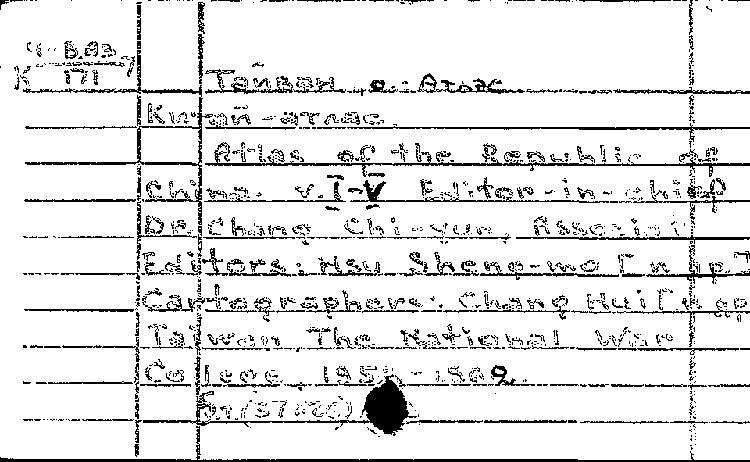 Тайван, о. Атлас
Китай - атлас.
Atlas of the Republic of
China. v. I-V Editor-in-chief
Dr. Chang Chi-yun, Associat
Editors: Hsu Sheng-mo [и др]
Cartographers: Chang Hui [и др
Taiwan, The National War
College,